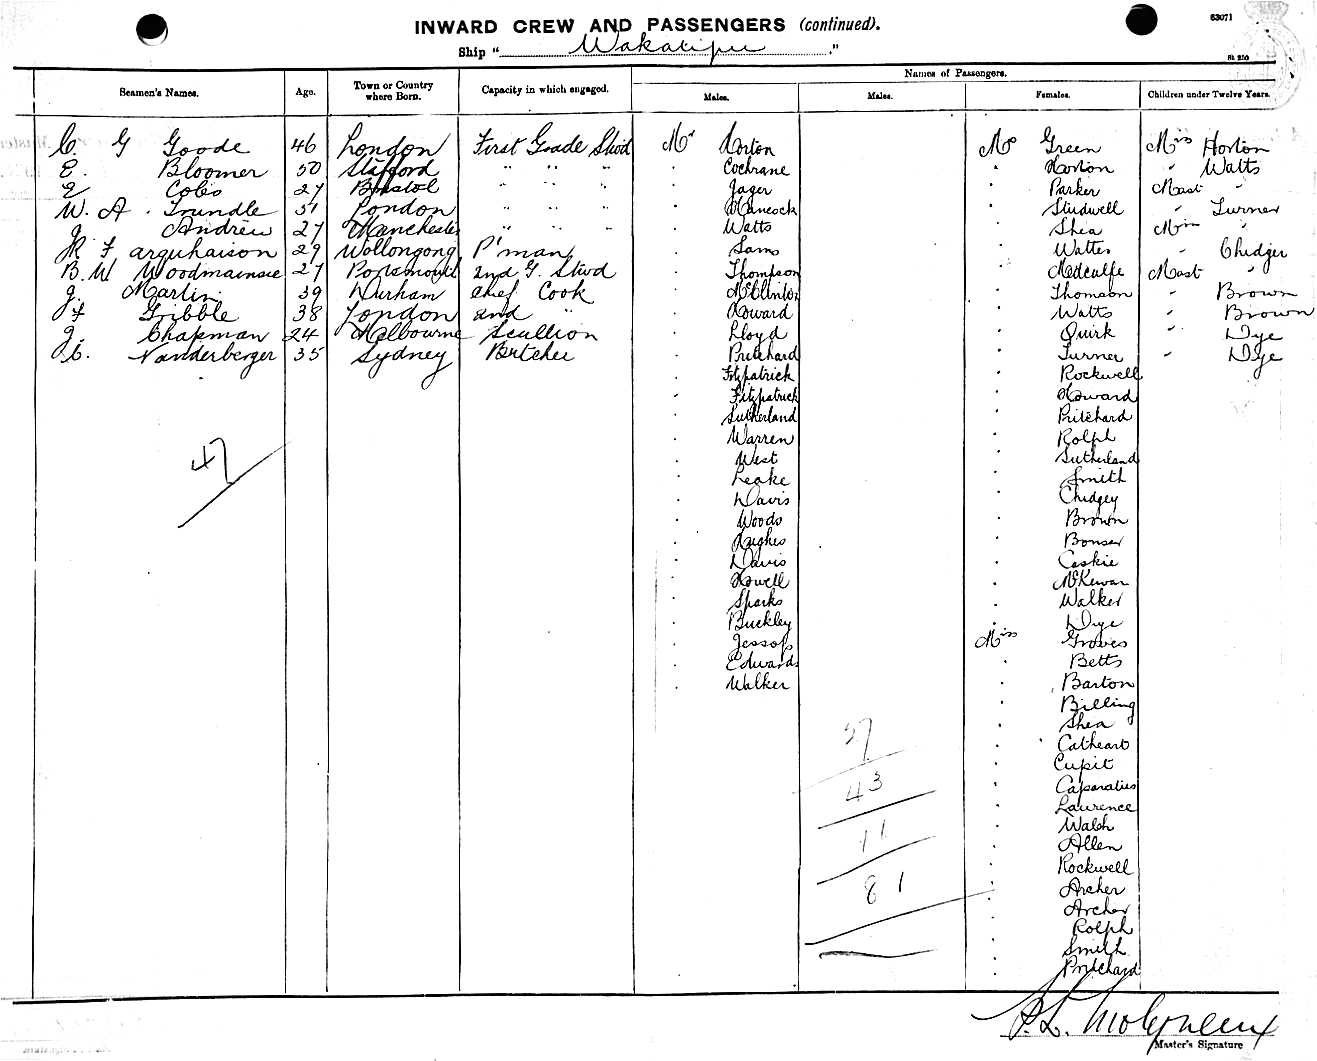 63071
INWARD CREW AND PASSENGERS (continued).
Ship "Wakatipu."
Sh 250
Names of Passengers.
Seamen's Names. Age. Town or Country where Born. Capacity in which engaged. Males. Males. Females. Children under Twelve Years.
C. G Goode 46 London First Grade Stwd Mr Horton Mrs Green Miss Horton
E. Bloomer 50 Stafford " " " Cochrane " Horton " Watts
E Coles 27 Bristol " " " Jager Parker Mast "
W. A. Trundle 51 London " " " Hancock Studwell " Turner
J Andrew 27 Manchester " " " Watts Shea Miss "
R F arquhaison 29 Wollongong P'man Sams Watter " Chidger
B. W Woodmainsee 27 Portsmouth 2nd G. Stwd Thompson Medcalfe Mast "
J. Martin 39 Durham chief Cook McClinton Thomson " Brown
F Gribble 38 London 2nd " Howard Watts " Brown
J. Chapman 24 Melbourne Scullion Lloyd Quirk " Dye
C. Vanderberger 35 Sydney Butcher Pritchard Turner " Dye
Fitzpatrick Rockwell
Fitzpatrick Howard
Sutherland Pritchard
Warren Rolph
47 West Sutherland
Leake Smith
Davis Chidgey
Woods Brown
Hughes Bonser
Davis Caskie
Howell McKewan
Sparks Walker
Buckley Dye
Jessop Miss Groves
Edwards Betts
Walker Barton
Billing
27 Shea
Cathcart
Cupit
43 Caparatus
Laurence
11 Walsh
Allen
Rockwell
81 Archer
Archer
Rolph
Smith
Pritchard
Master's Signature